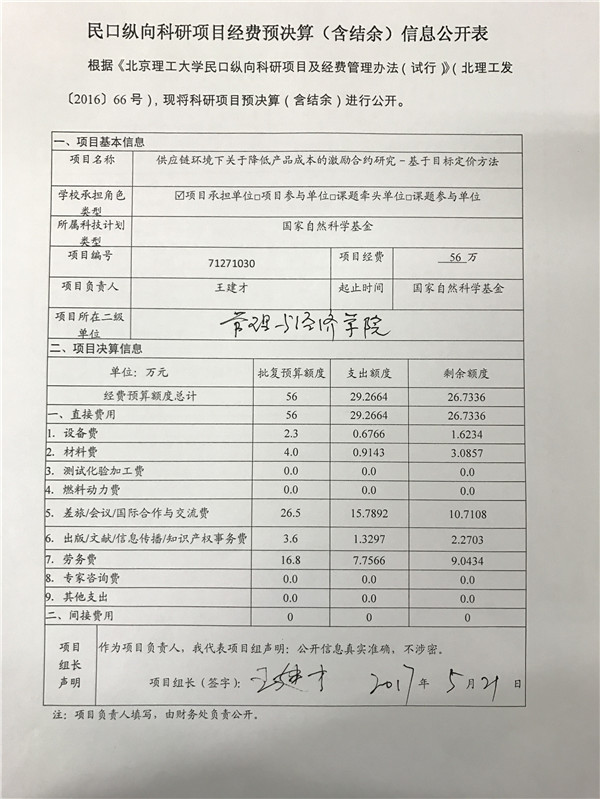 民口纵向科研项目经费预决算（含结余）信息公开表
根据《北京理工大学民口纵向科研项目及经费管理办法（试行）》（北理工发
〔2016〕66号），现将科研项目预决算（含结余）进行公开。
一、项目基本信息
项目名称 供应链环境下关于降低产品成本的激励合约研究－基于目标定价方法
学校承担角色类型 ☑项目承担单位□项目参与单位□课题牵头单位□课题参与单位
所属科技计划类型 国家自然科学基金
项目编号 71271030 项目经费 56 万
项目负责人 王建才 起止时间 国家自然科学基金
项目所在二级单位 管理与经济学院
二、项目决算信息
单位：万元 批复预算额度 支出额度 剩余额度
经费预算额度总计 56 29.2664 26.7336
一、直接费用 56 29.2664 26.7336
1. 设备费 2.3 0.6766 1.6234
2. 材料费 4.0 0.9143 3.0857
3. 测试化验加工费 0.0 0.0 0.0
4. 燃料动力费 0.0 0.0 0.0
5. 差旅/会议/国际合作与交流费 26.5 15.7892 10.7108
6. 出版/文献/信息传播/知识产权事务费 3.6 1.3297 2.2703
7. 劳务费 16.8 7.7566 9.0434
8. 专家咨询费 0.0 0.0 0.0
9. 其他支出 0.0 0.0 0.0
二、间接费用 0 0 0
项目组长声明 作为项目负责人，我代表项目组声明：公开信息真实准确，不涉密。
项目组长（签字）：王建才 2017 年 5 月 21 日
注：项目负责人填写，由财务处负责公开。